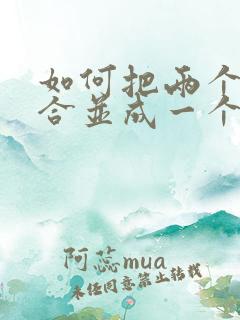 如何把两个
合並成一个
阿蕊mua
未经同意禁止转载